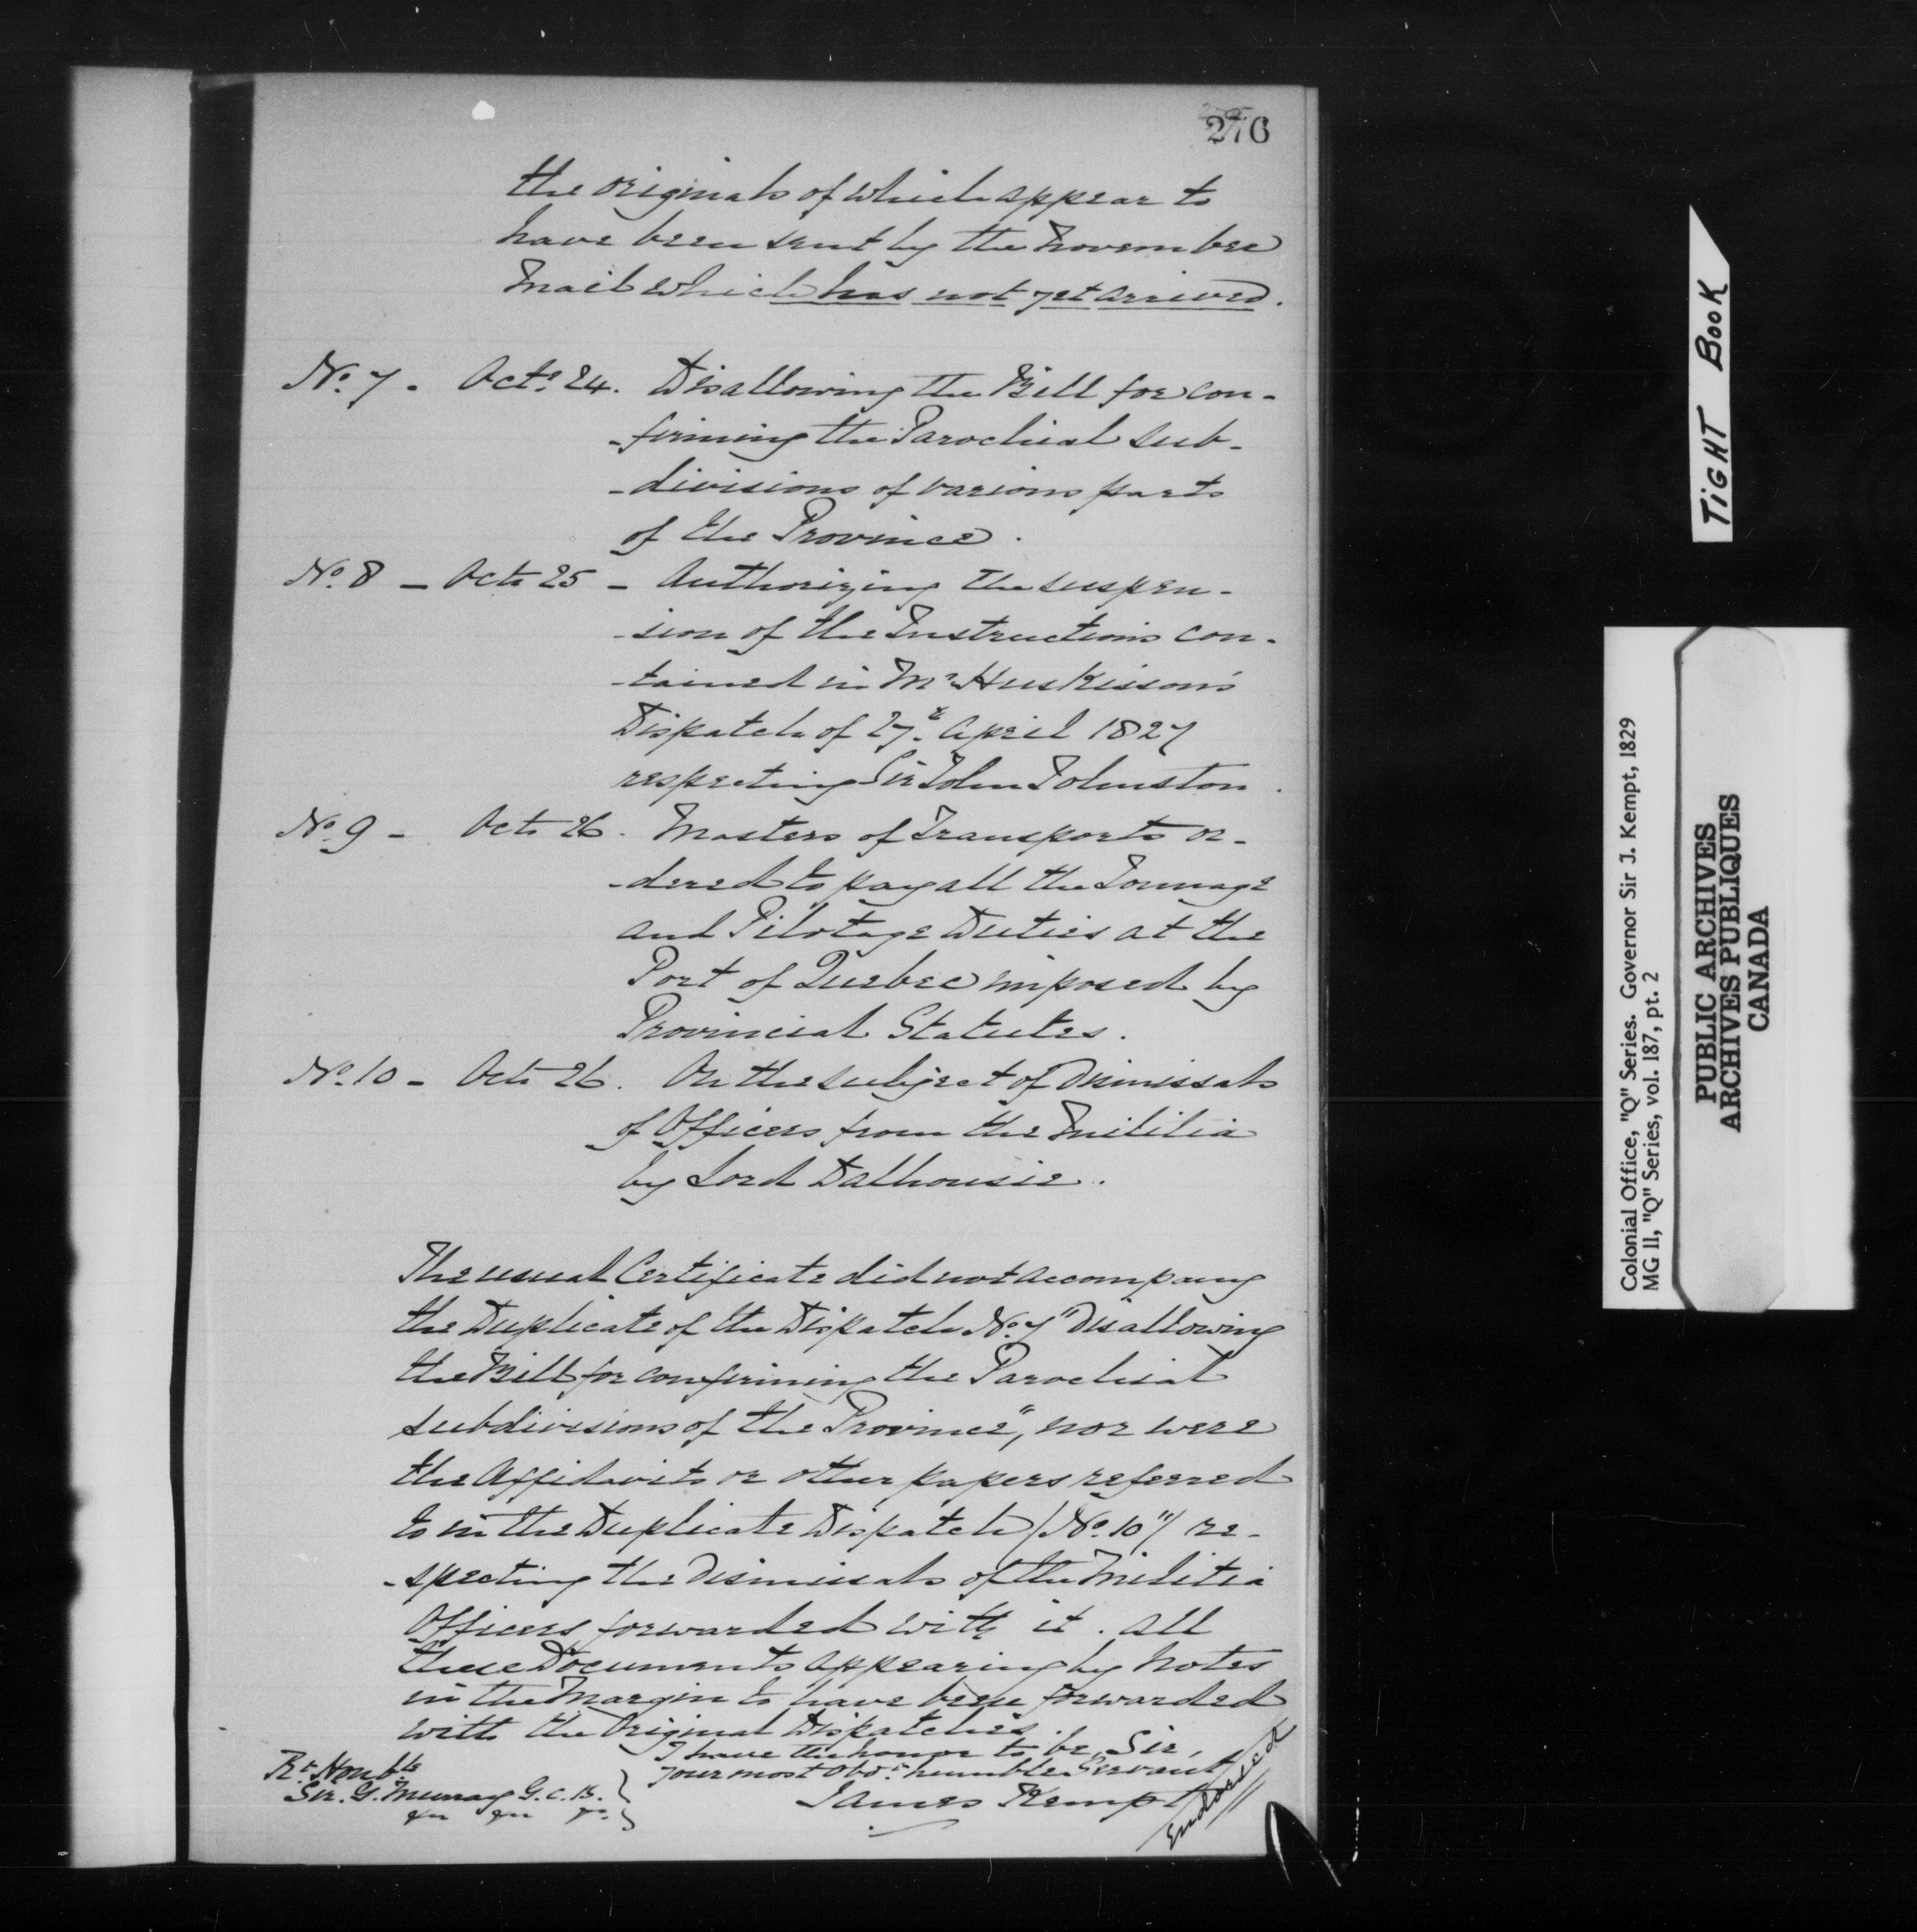 276
the originals of which appear to
have been sent by the November
Mail which has not yet arrived.
No. 7 - Octr. 24. Disallowing the Bill for con-
-firming the Parochial sub-
-divisions of various parts
of the Province.
No. 8 - Octr 25 - Authorizing the suspen-
-sion of the Instructions con-
-tained in Mr Huskisson's
Dispatch of 27th April 1827
respecting Sir John Johnston.
No. 9 - Octr 26. Masters of Transports or-
-dered to pay all the Tonnage
and Pilotage Duties at the
Port of Quebec imposed by
Provincial Statutes.
No. 10 - Octr 26. On the subject of Dismissals
of Officers from the Militia
by Lord Dalhousie.
The usual Certificate did not accompany
the Duplicate of the Dispatch No. 7 "Disallowing
the Bill for confirming the Parochial
subdivisions of the Province", nor were
the Affidavits or other papers referred
to in the Duplicate Dispatch (No. 10") re-
-specting the Dismissals of the Militia
Officers forwarded with it. All
these Documents appearing by Notes
in the Margin to have been forwarded
with the Original Dispatches.
I have the honor to be, Sir,
your most obdt. humble Servant
James Kempt
Rt. Honble
Sir. G. Murray G.C.B.
Endorsed
TIGHT BOOK
Colonial Office, "Q" Series. Governor Sir J. Kempt, 1829
MG 11, "Q" Series, vol. 187, pt. 2
PUBLIC ARCHIVES
ARCHIVES PUBLIQUES
CANADA